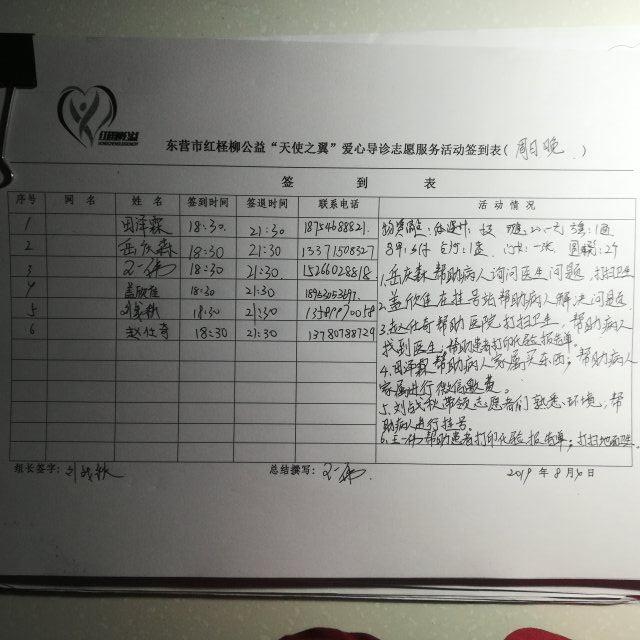 红柽柳公益
东营市红柽柳公益“天使之翼”爱心导诊志愿服务活动签到表(周日晚)
签 到 表
序号 网 名 姓 名 签到时间 签退时间 联系电话 活 动 情 况
1 田泽霖 18:30. 21:30 18754688821.
2 岳庆森 18:30 21:30 13371508327
3 王一伟 18:30 21:30. 15266028818
4 盖欣佳 18:30 21:30 18953053697.
5 18:30 21:30 13589970058
6 赵仕奇 18:30 21:30 13780788729
1.岳庆森帮助病人询问医生问题,打扫卫生
2.盖欣佳在挂号站帮助病人解决问题.
3.赵仕奇帮助医院打扫卫生,帮助病人
找到医生;帮助患者打印化验报告单。
4.田泽霖帮助病人家属买东西;帮助病人
家属进行微信缴费。
5.带领志愿者们熟悉环境,帮
助病人进行挂号.
6.王一伟帮助患者打印化验报告单;打扫地面卫生.
组长签字: 总结撰写:王一伟. 2019年8月 日